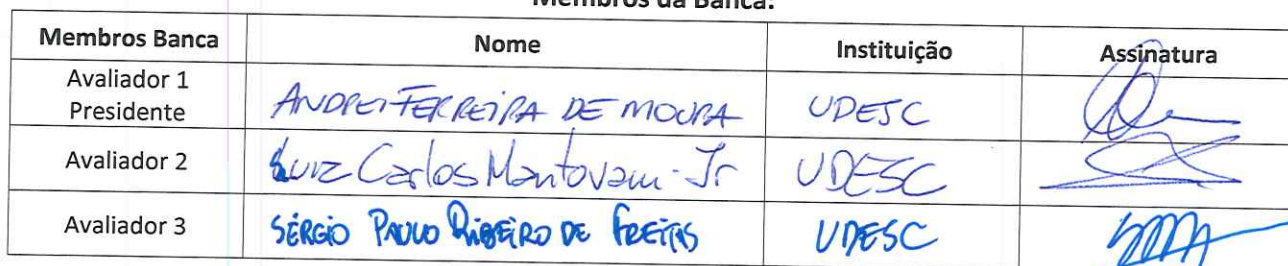 Membros da Banca:
Membros Banca Nome Instituição Assinatura
Avaliador 1
Presidente ANDREI FERREIRA DE MOURA UDESC
Avaliador 2 Luiz Carlos Mantovani Jr UDESC
Avaliador 3 SÉRGIO PAULO RIBEIRO DE FREITAS UDESC